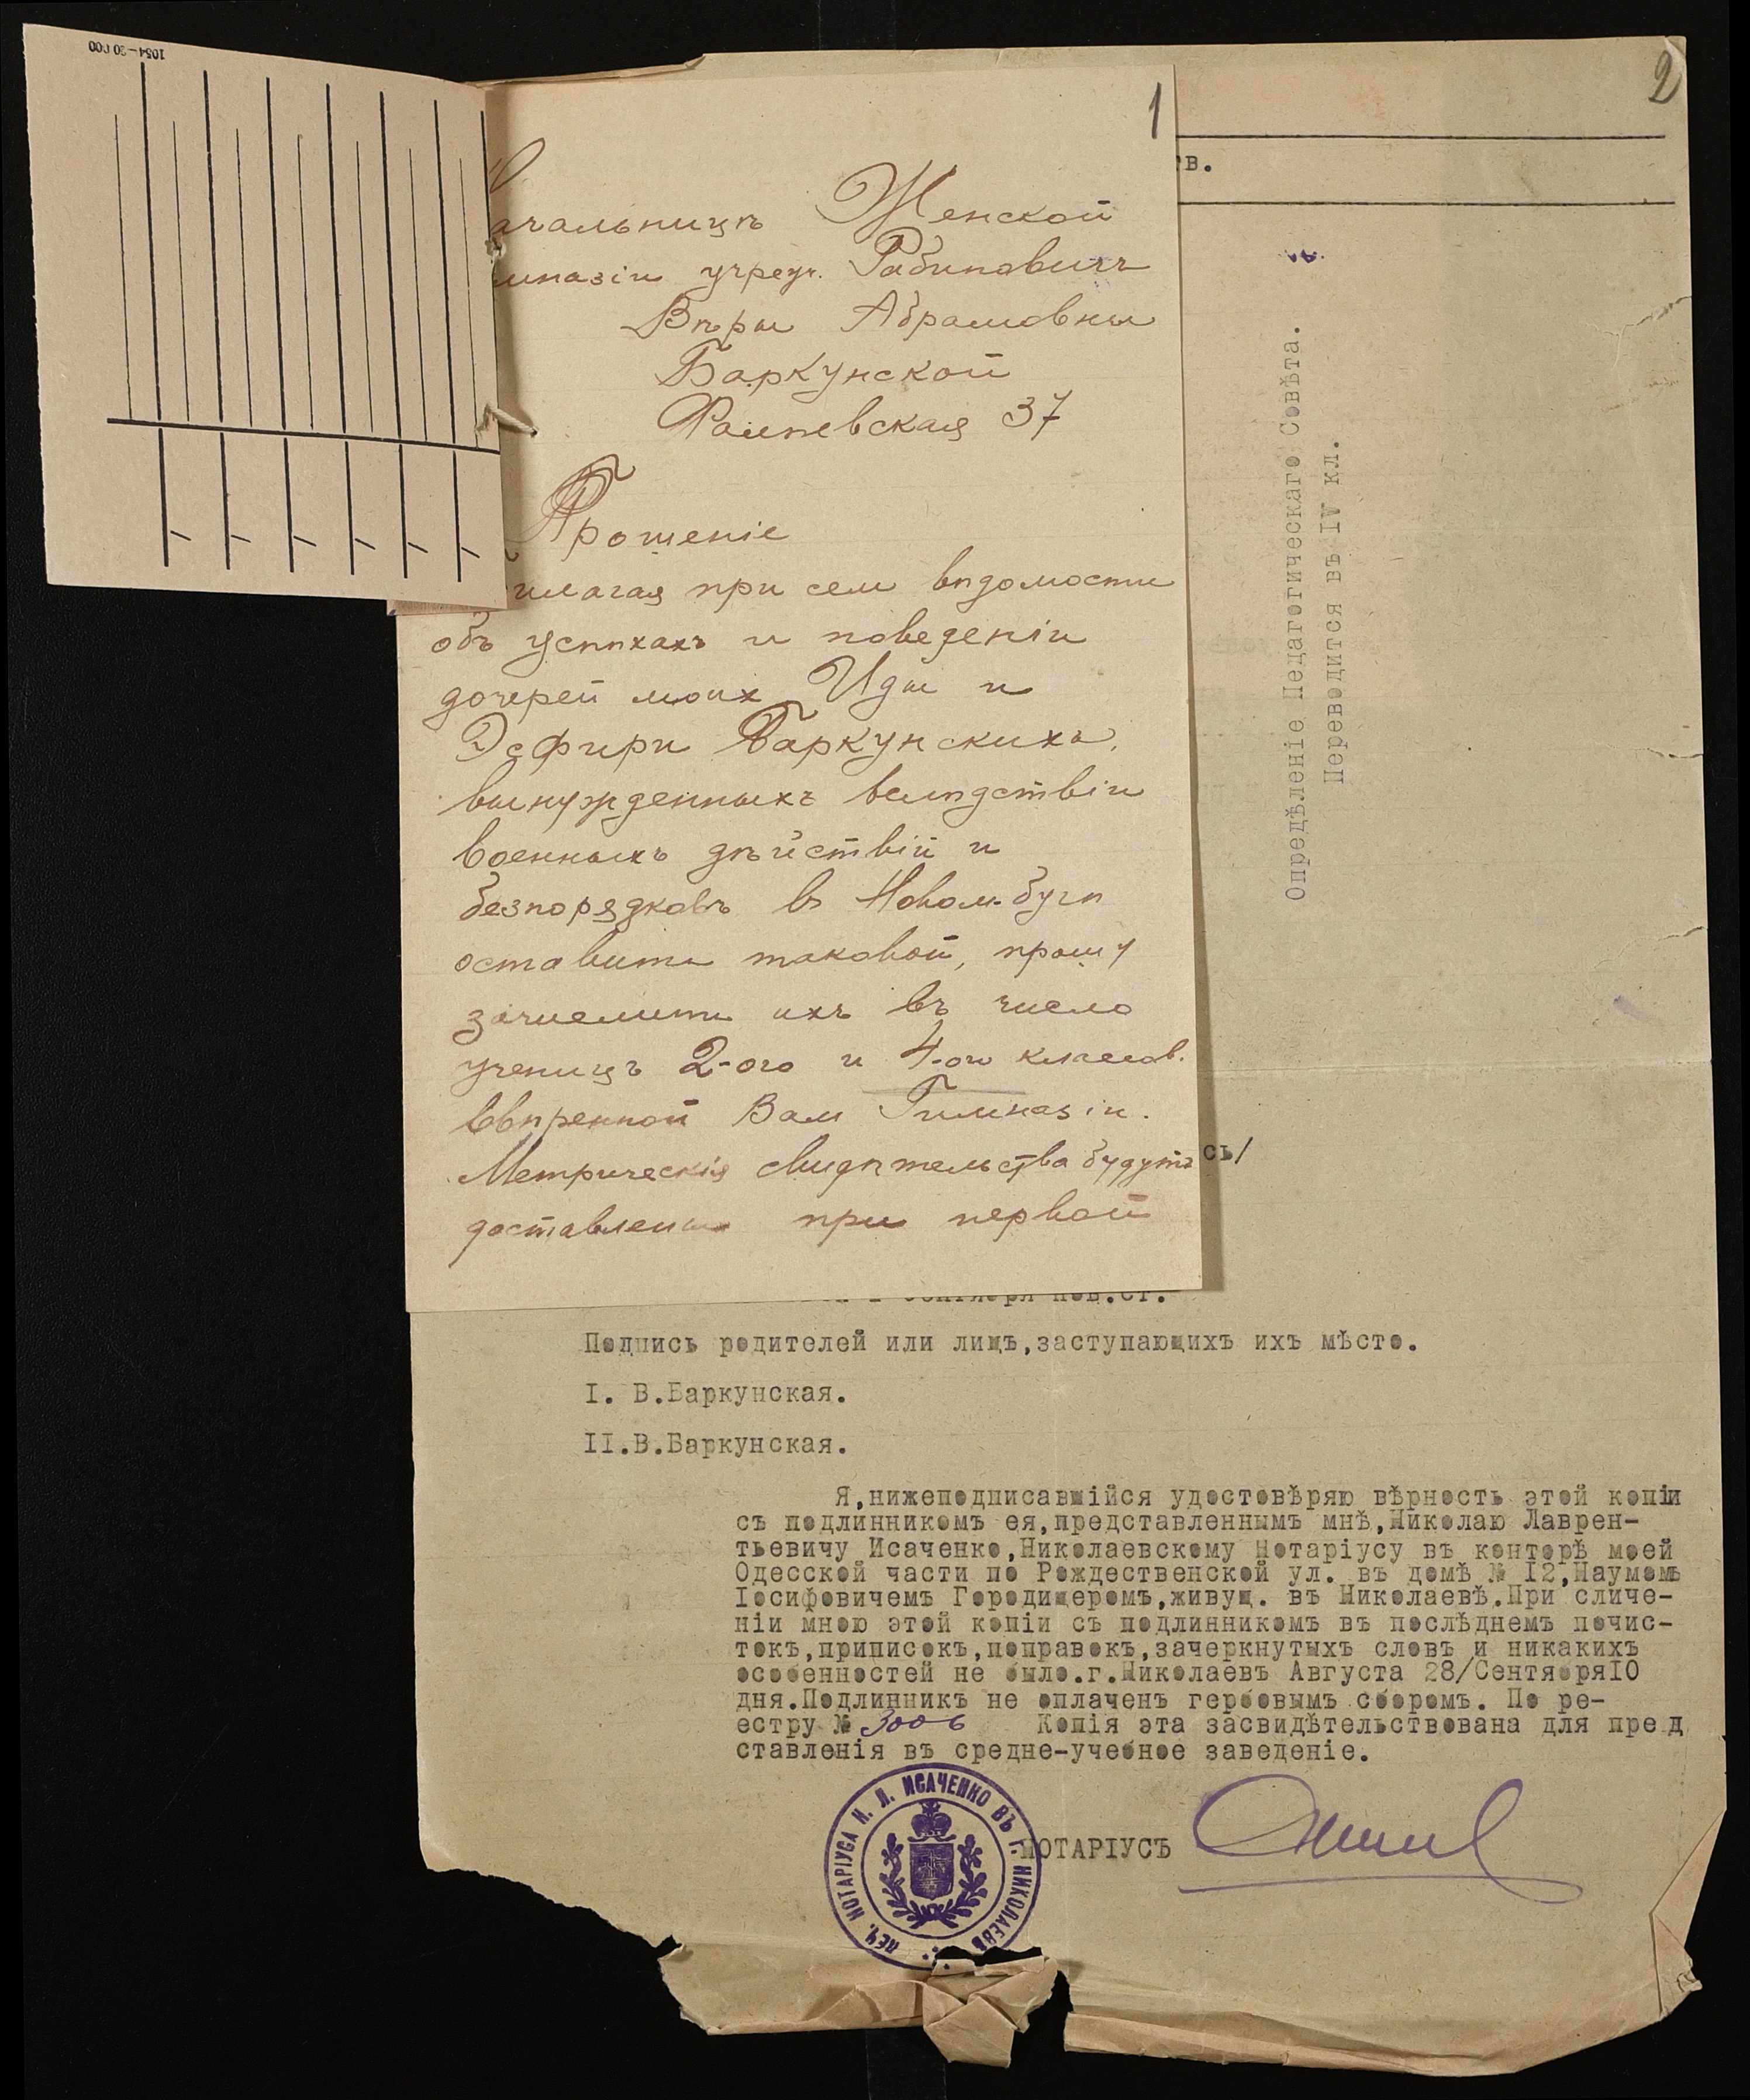 1054—20 000
1
2
ачальницѣ Женской
имназіи учреж. Рабиновичъ
Вѣры Абрамовны
Баркунской
37
Прошеніе
илагая при семъ вѣдомости
объ успѣхахъ и поведеніи
дочерей моихъ Иды и
Эсфири Баркунскихъ,
вынужденныхъ вслѣдствіи
военныхъ дѣйствій и
безпорядковъ въ Новом-Бугѣ
оставить таковой, прошу
зачислить ихъ въ число
ученицъ 2-ого и 4-ого классов.
ввѣренной Вам Гимназіи.
Метрическія свидѣтельства будутъ
доставлены при первой
тв.
Опредѣленіе Педагогическаго Совѣта.
Переводится въ IV кл.
сь/
сентября нов.ст.
Подпись родителей или лицъ,заступающихъ ихъ мѣсто.
I. В.Баркунская.
II.В.Баркунская.
Я,нижеподписавшійся удостовѣряю вѣрность этой копіи
съ подлинникомъ ея,представленнымъ мнѣ,Николаю Лаврен-
тьевичу Исаченко,Николаевскому Нотаріусу въ конторѣ моей
Одесской части по Рождественской ул. въ домѣ № I2,Наумомъ
Іосифовичемъ Городищеромъ,живущ. въ Николаевѣ.При сличе-
ніи мною этой копіи съ подлинникомъ въ послѣднемъ почис-
токъ,приписокъ,поправокъ,зачеркнутыхъ словъ и никакихъ
особенностей не было.г.Николаевъ Августа 28/СентябряI0
дня.Подлинникъ не оплаченъ гербовымъ сборомъ. По ре-
естру № 3006 Копія эта засвидѣтельствована для пред
ставленія въ средне-учебное заведеніе.
НОТАРІУСЪ
ПЕЧ. НОТАРІУСА Н. Л. ИСАЧЕНКО ВЪ Г. НИКОЛАЕВѢ